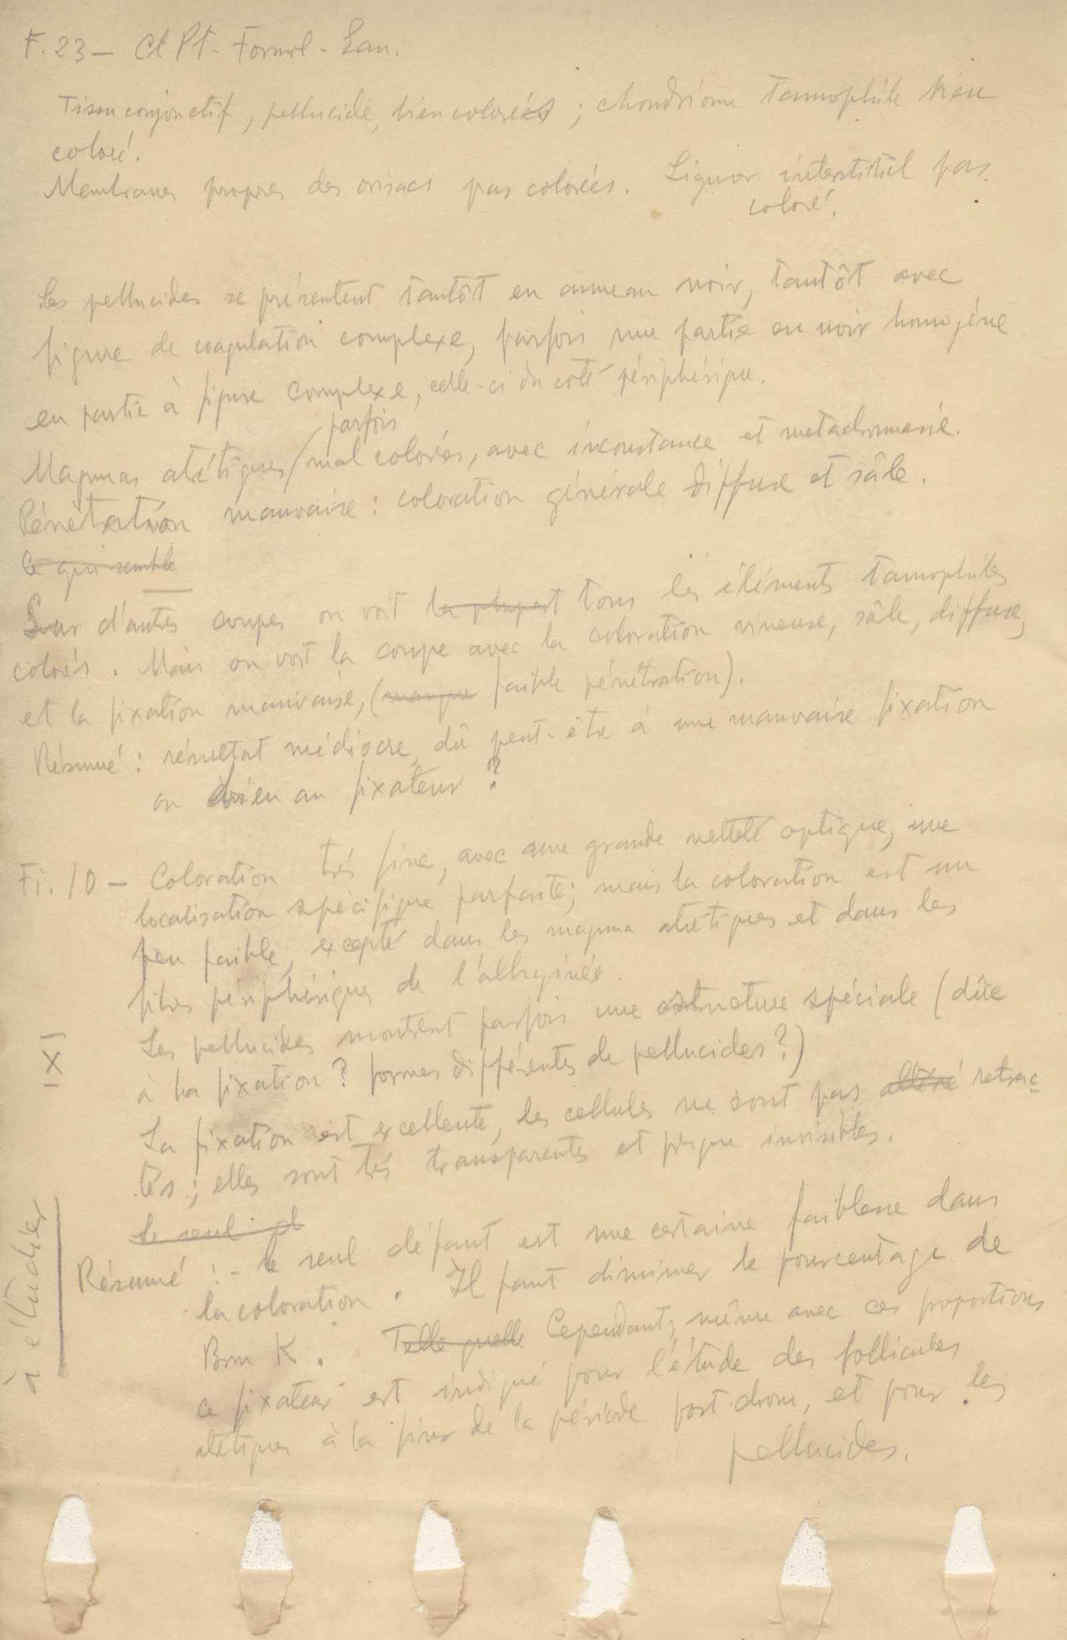 F. 23 — Cl Pt - Formol - Eau.
Tissu conjonctif, pellucide, bien colorés ; chondriome tannophile bien
coloré.
Membranes propres des ovisacs pas colorées. Liquor interstitiel pas
coloré.
Les pellucides se présentent tantôt en anneau noir, tantôt avec
figure de coagulation complexe, parfois une partie en noir homogène
en partie à figure complexe, celle-ci du côté périphérique.
parfois
Magmas atrétiques / mal colorés, avec inconstance et métachromasie.
Pénétration mauvaise : coloration générale diffuse et sâle.
Ce qui semble
Sur d'autres coupes on voit la plupart tous les éléments tannophiles
colorés. Mais on voit la coupe avec la coloration vineuse, sâle, diffuse,
et la fixation mauvaise, (manque faible pénétration).
Résumé : résultat médiocre, dû peut-être à une mauvaise fixation
ou bien au fixateur ?
Fi. 10 — Coloration très fine, avec une grande netteté optique, une
localisation spécifique parfaite ; mais la coloration est un
peu faible, excepté dans les magma atrétiques et dans les
fibres périphériques de l'albuginée.
Les pellucides montrent parfois une structure spéciale (dûe
à la fixation ? formes différentes de pellucides ?)
La fixation est excellente, les cellules ne sont pas altéré retrac
tés ; elles sont très transparentes et presque invisibles.
Le seul
Résumé :- le seul défaut est une certaine faiblesse dans
la coloration. Il faut diminuer le pourcentage de
Brm K. Telle quelle Cependant, même avec ces proportions
ce fixateur est indiqué pour l'étude des follicules
atrétiques à la fin de la période post-, et pour les
pellucides.
IXI
à étudier